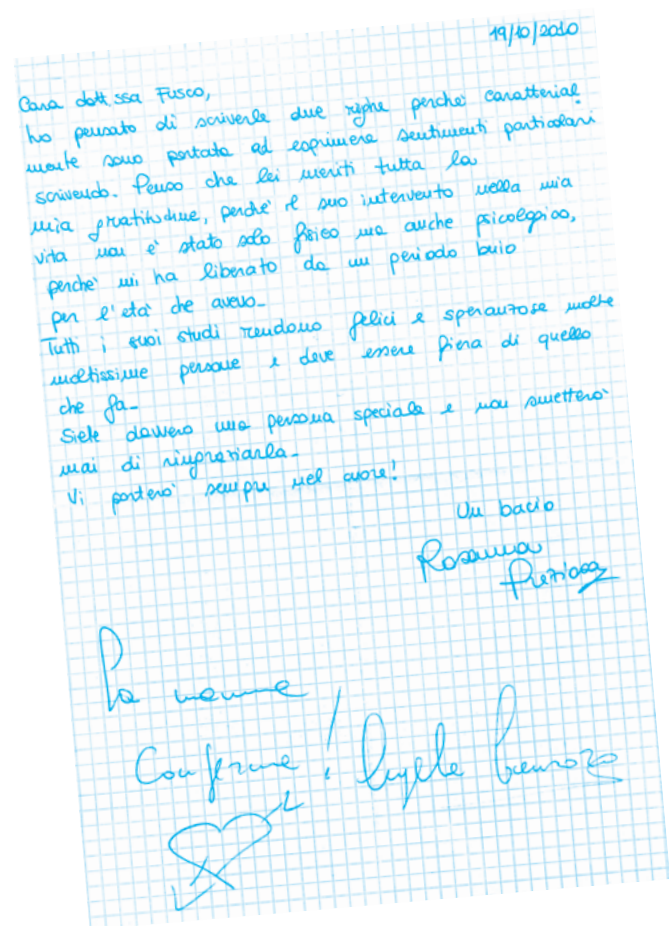 19/10/2010
Cara dott.ssa Fusco,
ho pensato di scriverle due righe perchè caratterial
mente sono portata ad esprimere sentimenti particolari
scrivendo. Penso che lei meriti tutta la
mia gratitudine, perchè il suo intervento nella mia
vita non è stato solo fisico ma anche psicologico,
perchè mi ha liberato da un periodo buio
per l'età che avevo.
Tutti i suoi studi rendono felici e speranzose molte
moltissime persone e deve essere fiera di quello
che fa.
Siete davvero una persona speciale e non smetterò
mai di ringraziarla.
Vi porterò sempre nel cuore!
Un bacio
Rosanna
Preziosa
La mamma
Conferma!